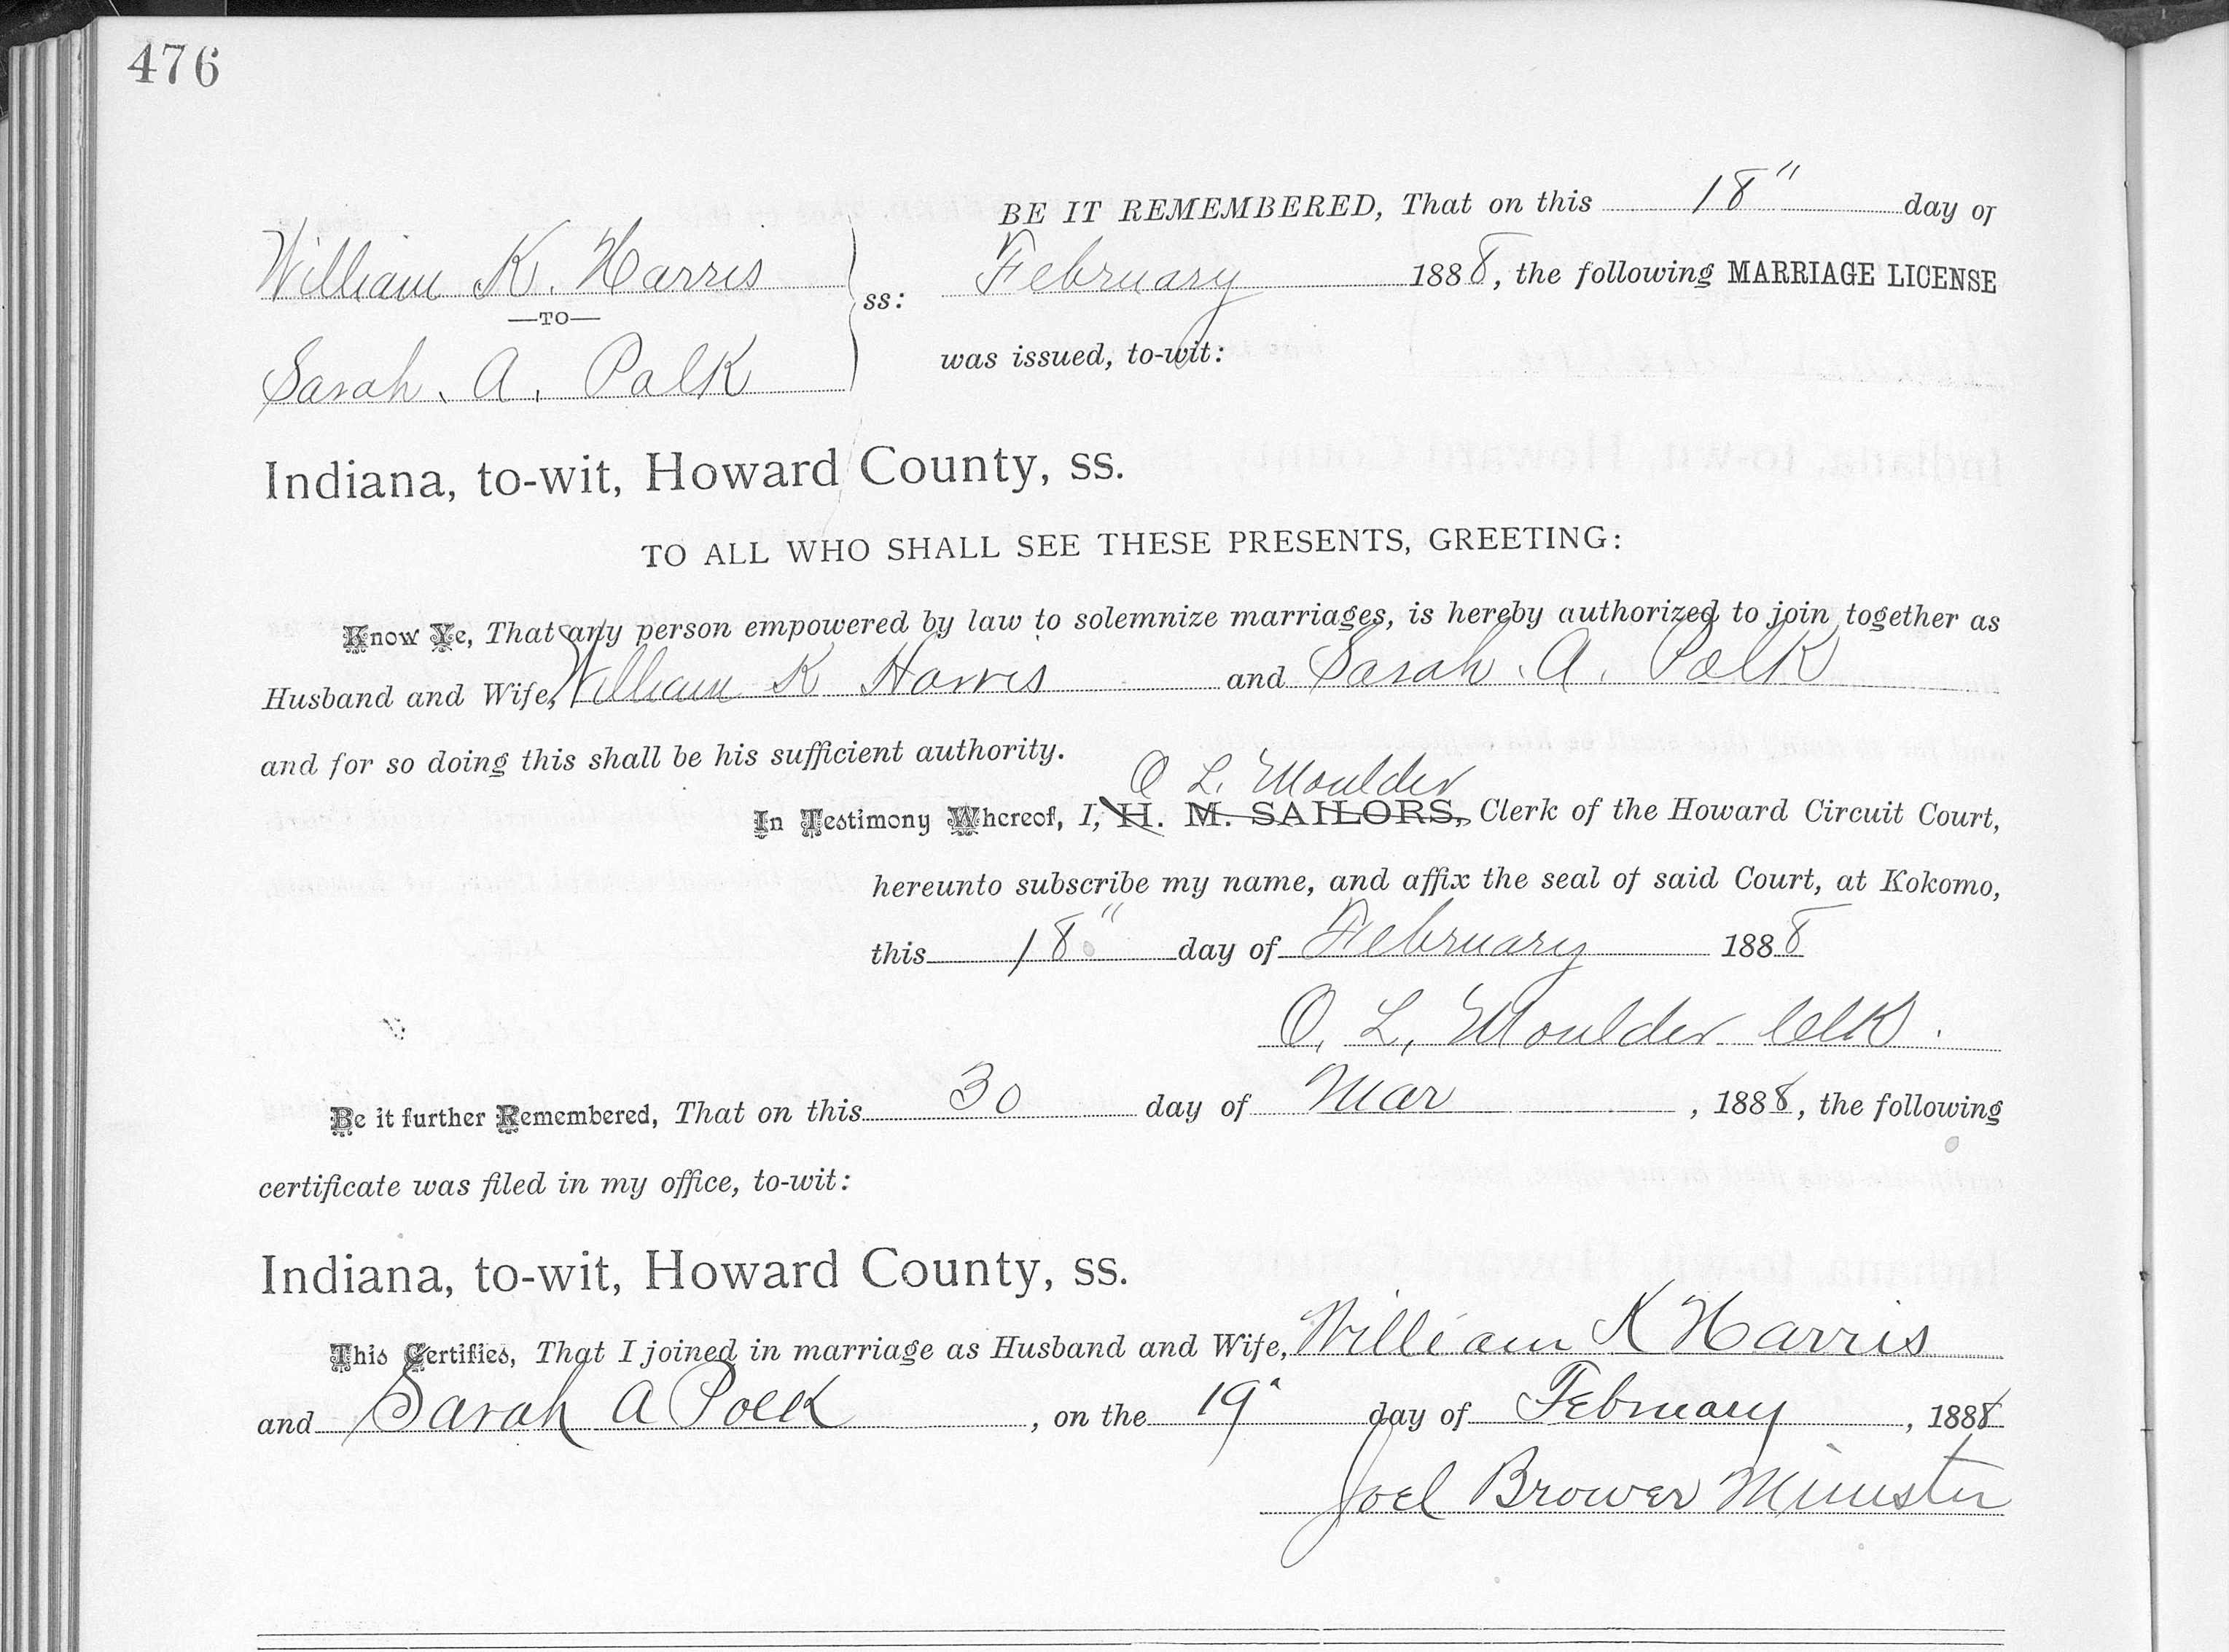 476
BE IT REMEMBERED, That on this 18" day of
William K. Harris
February 1888, the following MARRIAGE LICENSE
—TO— ss:
Sarah. A. Polk
was issued, to-wit:
Indiana, to-wit, Howard County, ss.
TO ALL WHO SHALL SEE THESE PRESENTS, GREETING:
Know Ye, That any person empowered by law to solemnize marriages, is hereby authorized to join together as
Husband and Wife, William K Harris and Sarah. A. Polk
and for so doing this shall be his sufficient authority.
O L. Moulder
In Testimony Whereof, I, H. M. SAILORS, Clerk of the Howard Circuit Court,
hereunto subscribe my name, and affix the seal of said Court, at Kokomo,
this 18" day of February 1888
O. L. Moulder Clk.
Be it further Remembered, That on this 30 day of Mar, 1888, the following
certificate was filed in my office, to-wit:
Indiana, to-wit, Howard County, ss.
This Certifies, That I joined in marriage as Husband and Wife, William K Harris
and Sarah A Polk, on the 19" day of February, 1888
Joel Brower Minister